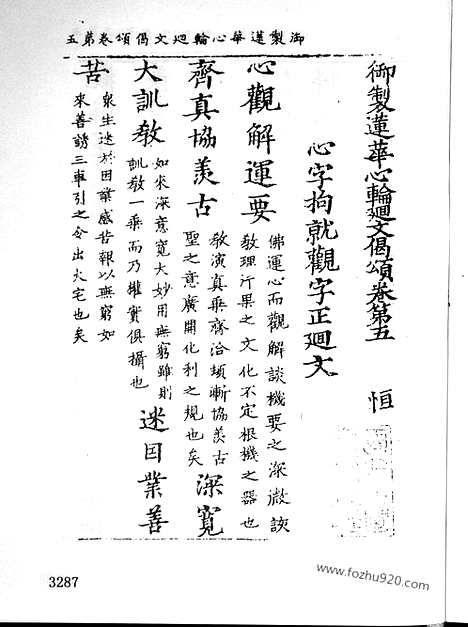 御製蓮華心輪廻文偈頌卷弟五
御製蓮華心輪廻文偈頌卷第五 恒
心字拘就觀字正廻文
心觀解運要 佛運心而觀解談機要之深微該
教理行果之文化不定根機之器也
齊真協羡古 教演真乗齊洽頓漸協羡古
聖之意廣開化利之規也矣 深寬
大訓教 如來深意寬大妙用無窮雖則
訓教一乗而乃權實俱攝也 迷因業善
苦 衆生迷於因業感苦報以無窮如
來善誘三車引之令出火宅也矣
3287
www.fozhu920.com